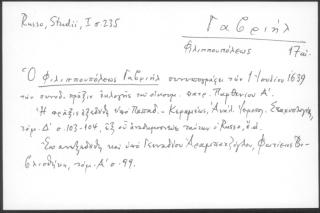 Russo, Studii, I σ.235
Γαβριήλ
Φιλιππουπόλεως 17 αἰ.
Ὁ Φιλιππουπόλεως Γαβριήλ συνυπογράφει τήν 1 Ἰουλίου 1639
τήν συνοδ. πρᾶξιν ἐκλογῆς τοῦ οἰκουμ. πατρ. Παρθενίου Α΄.
Ἡ πρᾶξις ἐξεδόθη ὑπό Παπαδ.- Κεραμέως, Ἀνάλ. Ἱεροσ. Σταχυολογίας,
τόμ. Δ΄ σ. 103-104, ἐξ οὗ ἀναδημοσιεύει ταύτην ὁ Russo, ἔ.ἀ.
Ἐπανεξεδόθη καί ὑπό Γενναδίου Ἀραμπατζόγλου, Φωτίειος Βι-
βλιοθήκη, τόμ. Α΄ σ. 99.